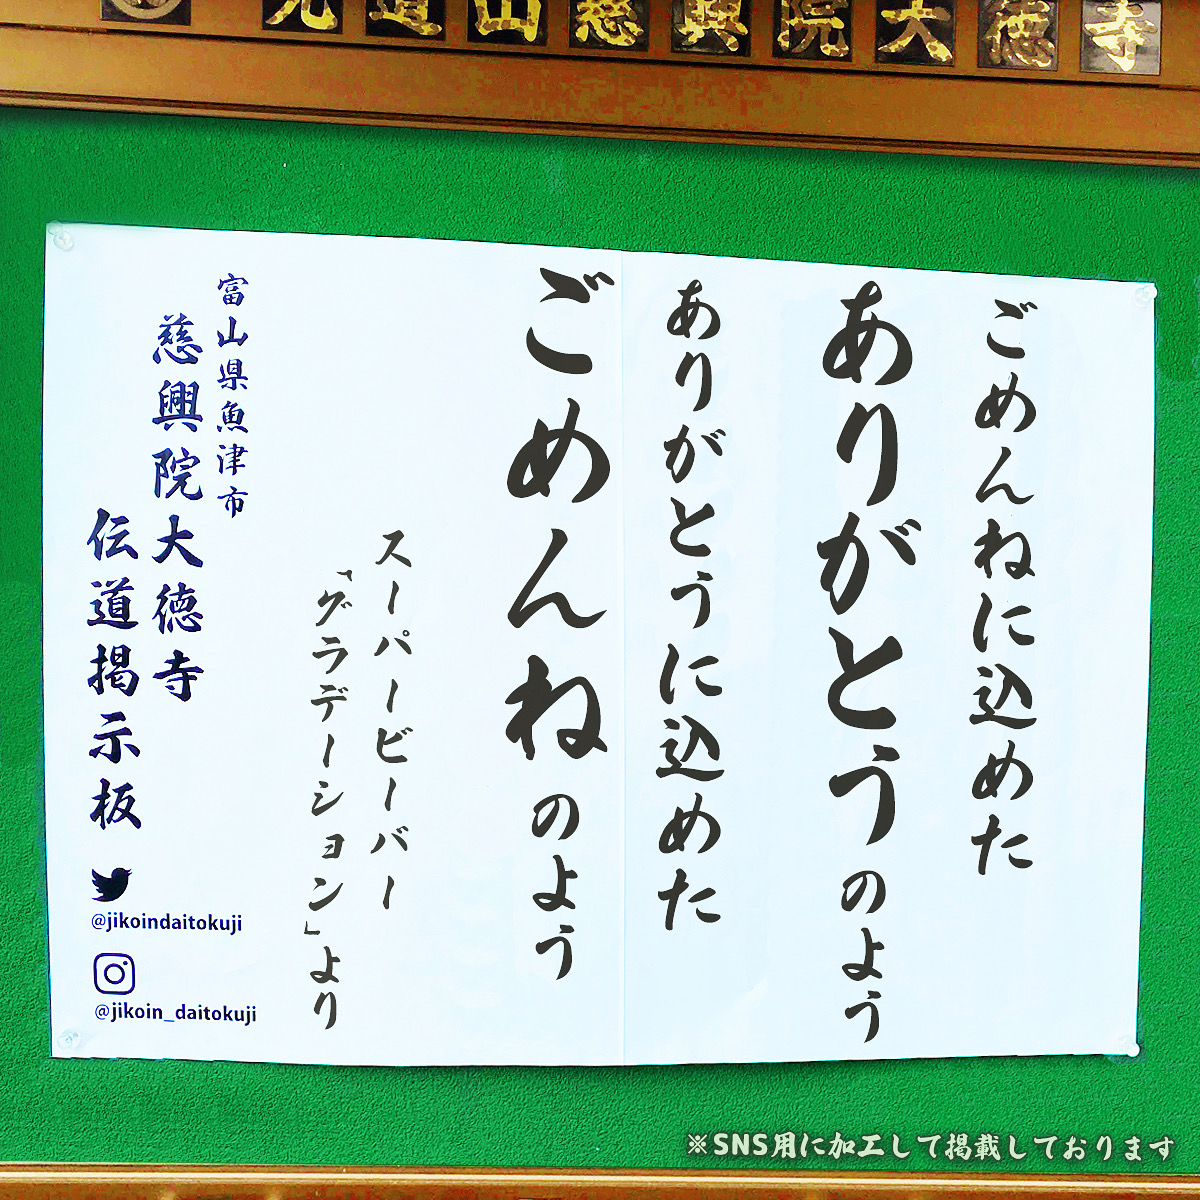 光道山慈興院大徳寺
ごめんねに込めた
ありがとうのよう
ありがとうに込めた
ごめんねのよう
スーパービーバー
「グラデーション」より
富山県魚津市
慈興院大徳寺
伝道掲示板
@jikoindaitokuji
@jikoin_daitokuji
※SNS用に加工して掲載しております